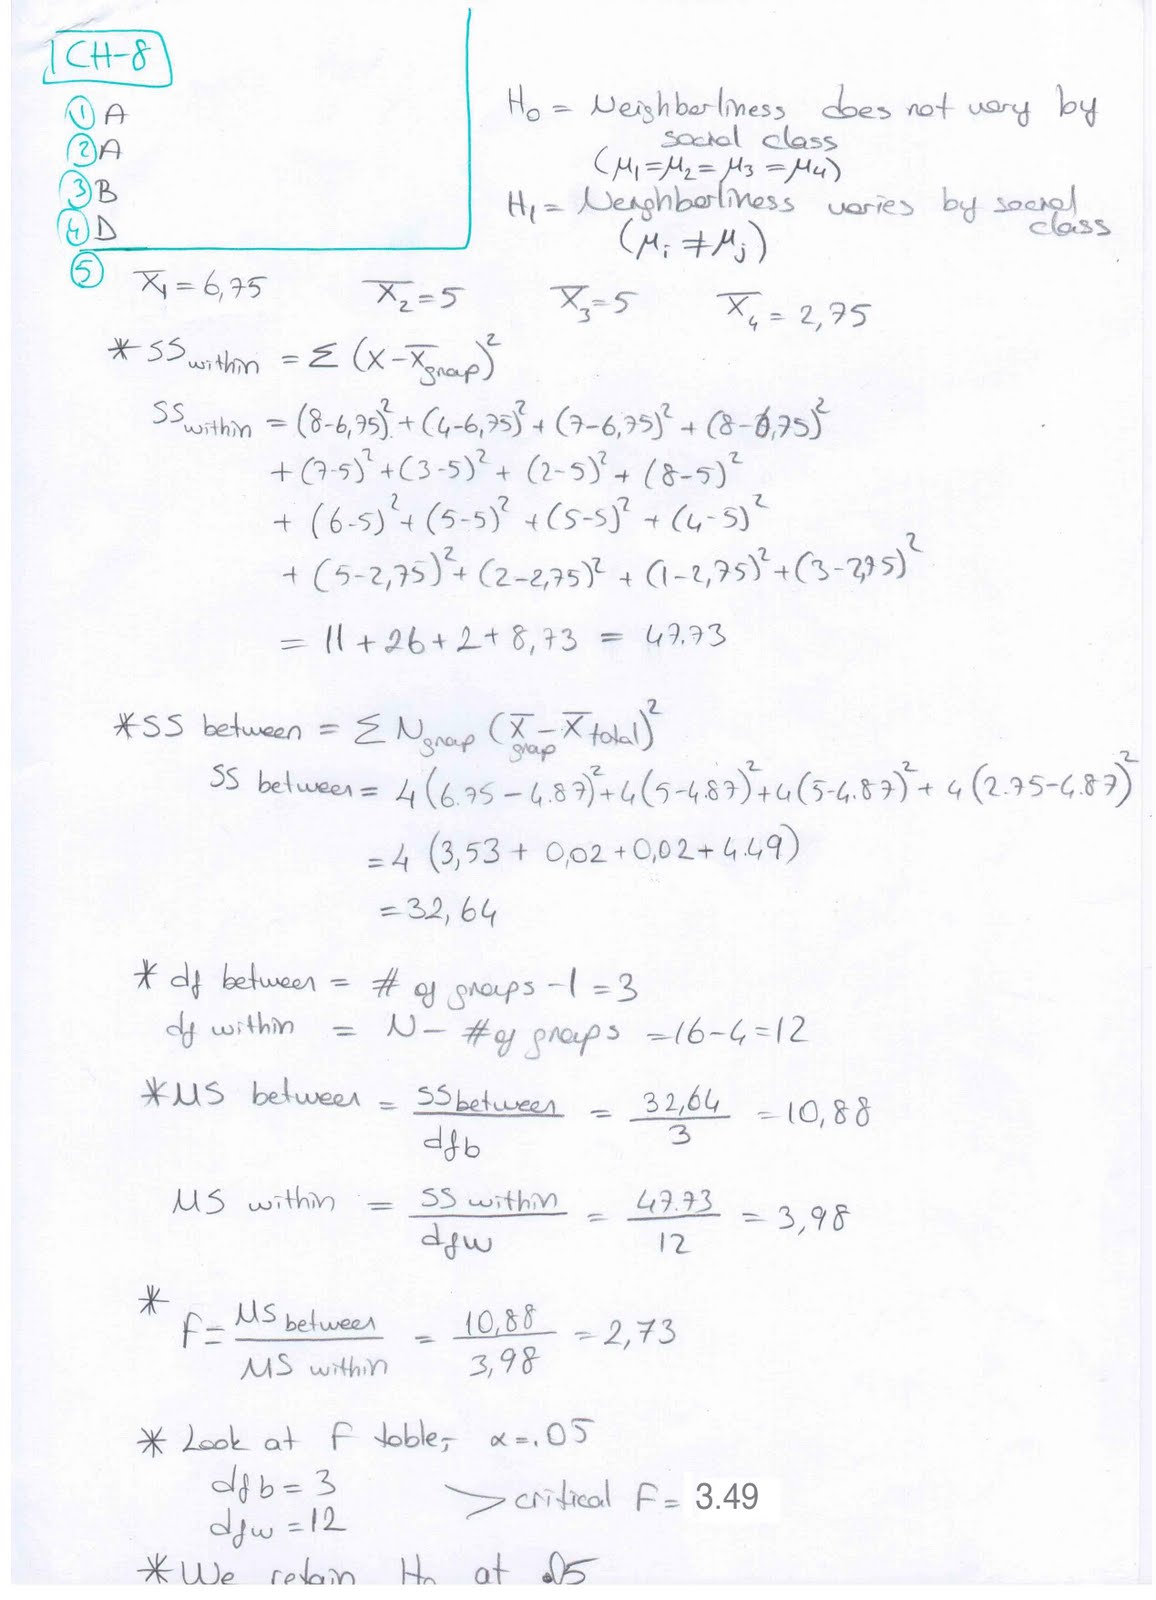 CH-8
① A
② A
③ B
④ D
H₀ = Neighborliness does not vary by
social class
(μ₁=μ₂=μ₃=μ₄)
H₁ = Neighborliness varies by social
class
(μᵢ ≠ μⱼ)
⑤ X̄₁ = 6,75 X̄₂ = 5 X̄₃ = 5 X̄₄ = 2,75
* SS within = Σ (X - X̄ group)²
SS within = (8-6,75)² + (4-6,75)² + (7-6,75)² + (8-6,75)²
+ (7-5)² + (3-5)² + (2-5)² + (8-5)²
+ (6-5)² + (5-5)² + (5-5)² + (4-5)²
+ (5-2,75)² + (2-2,75)² + (1-2,75)² + (3-2,75)²
= 11 + 26 + 2 + 8,73 = 47.73
* SS between = Σ N group (X̄ group - X̄ total)²
SS between = 4(6.75 - 4.87)² + 4(5-4.87)² + 4(5-4.87)² + 4(2.75-4.87)²
= 4 (3,53 + 0,02 + 0,02 + 4.49)
= 32,64
* df between = # of groups - 1 = 3
df within = N - # of groups = 16-4 = 12
* MS between = SS between / dfb = 32,64 / 3 = 10,88
MS within = SS within / dfw = 47.73 / 12 = 3,98
* F = MS between / MS within = 10,88 / 3,98 = 2,73
* Look at F table, α = .05
dfb = 3
> critical F = 3.49
dfw = 12
* We retain H₀ at .05